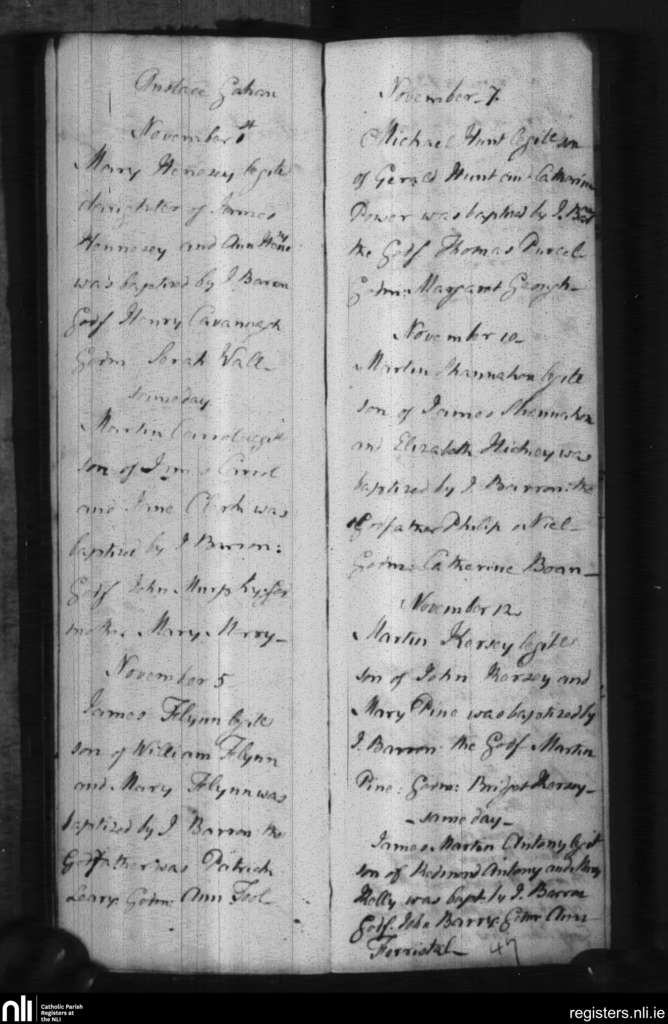 Gahan
November 1st
Mary Hennesy legite
daughter of James
Hennesey and Ann
was baptized by J Barron
Godf Henry Cavanagh
Godm Sarah Wall
same day
Martin Carrol legit
son of James Carrol
and Jane Clark was
baptized by J Barron:
Godf John Murphy God
mother Mary
November 5
James Flynn legite
son of William Flynn
and Mary Flynn was
baptized by J Barron the
Godfather was Patrick
Leary Godm: Ann
November 7
Michael Hunt legite son
of Gerald Hunt and Catherine
Power was baptized by J.
the Godf Thomas Purcel
Godm: Margaret
November 10
Martin Shannahan legite
son of James Shannahan
and Elizabeth Hickey was
baptized by J. Barron: the
Godfather Philip
Godm: Catherine
November 12
Martin Kersey legite
son of John Kersey and
Mary Pine was baptized by
J. Barron the Godf Martin
Pine: Godm: Bridget Kersey
same day
James Martin Antony legit
son of Redmond Antony and Mary
Kelly was bapt by J. Barron
Godf. John Barry Godm Ann
Forristal
47
nli
Catholic Parish
Registers at
the NLI
registers.nli.ie